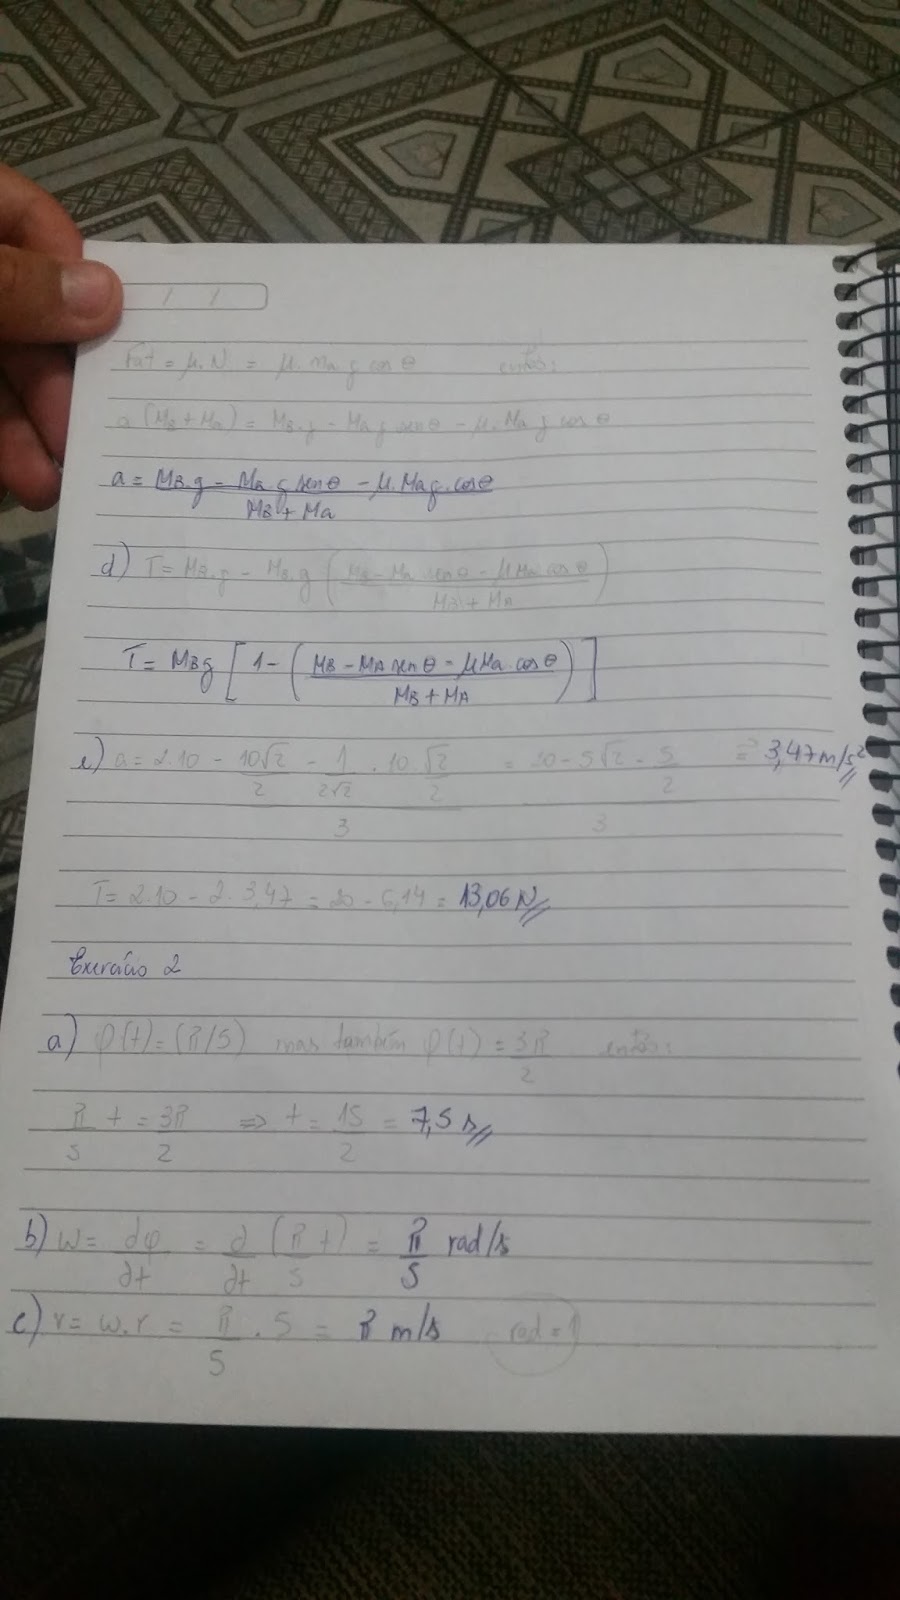 / /
Fat = μ.N = μ.Ma g cos θ então:
a (MB + Ma) = MB.g - Ma g sen θ - μ.Ma g cos θ
a = MB.g - Ma.g sen θ - μ.Ma g.cos θ
MB + Ma
d) T = MB.g - MB.g ( MB - Ma sen θ - μ Ma cos θ )
MB + MA
T = MBg [ 1 - ( MB - MA sen θ - μ Ma.cos θ ) ]
MB + MA
e) a = 2.10 - 10√2 - 1 . 10 √2 = 20 - 5√2 - 5 = 3,47 m/s²
2 2√2 2 2
3 3
T = 2.10 - 2.3,47 = 20 - 6,14 = 13,06 N
Exercício 2
a) φ(t) = (π/5) mas também φ(t) = 3π então:
2
π t = 3π ⇒ t = 15 = 7,5 s
5 2 2
b) w = dφ = d (π t) = π rad/s
dt dt 5 5
c) v = w.r = π . 5 = π m/s rad = 1
5